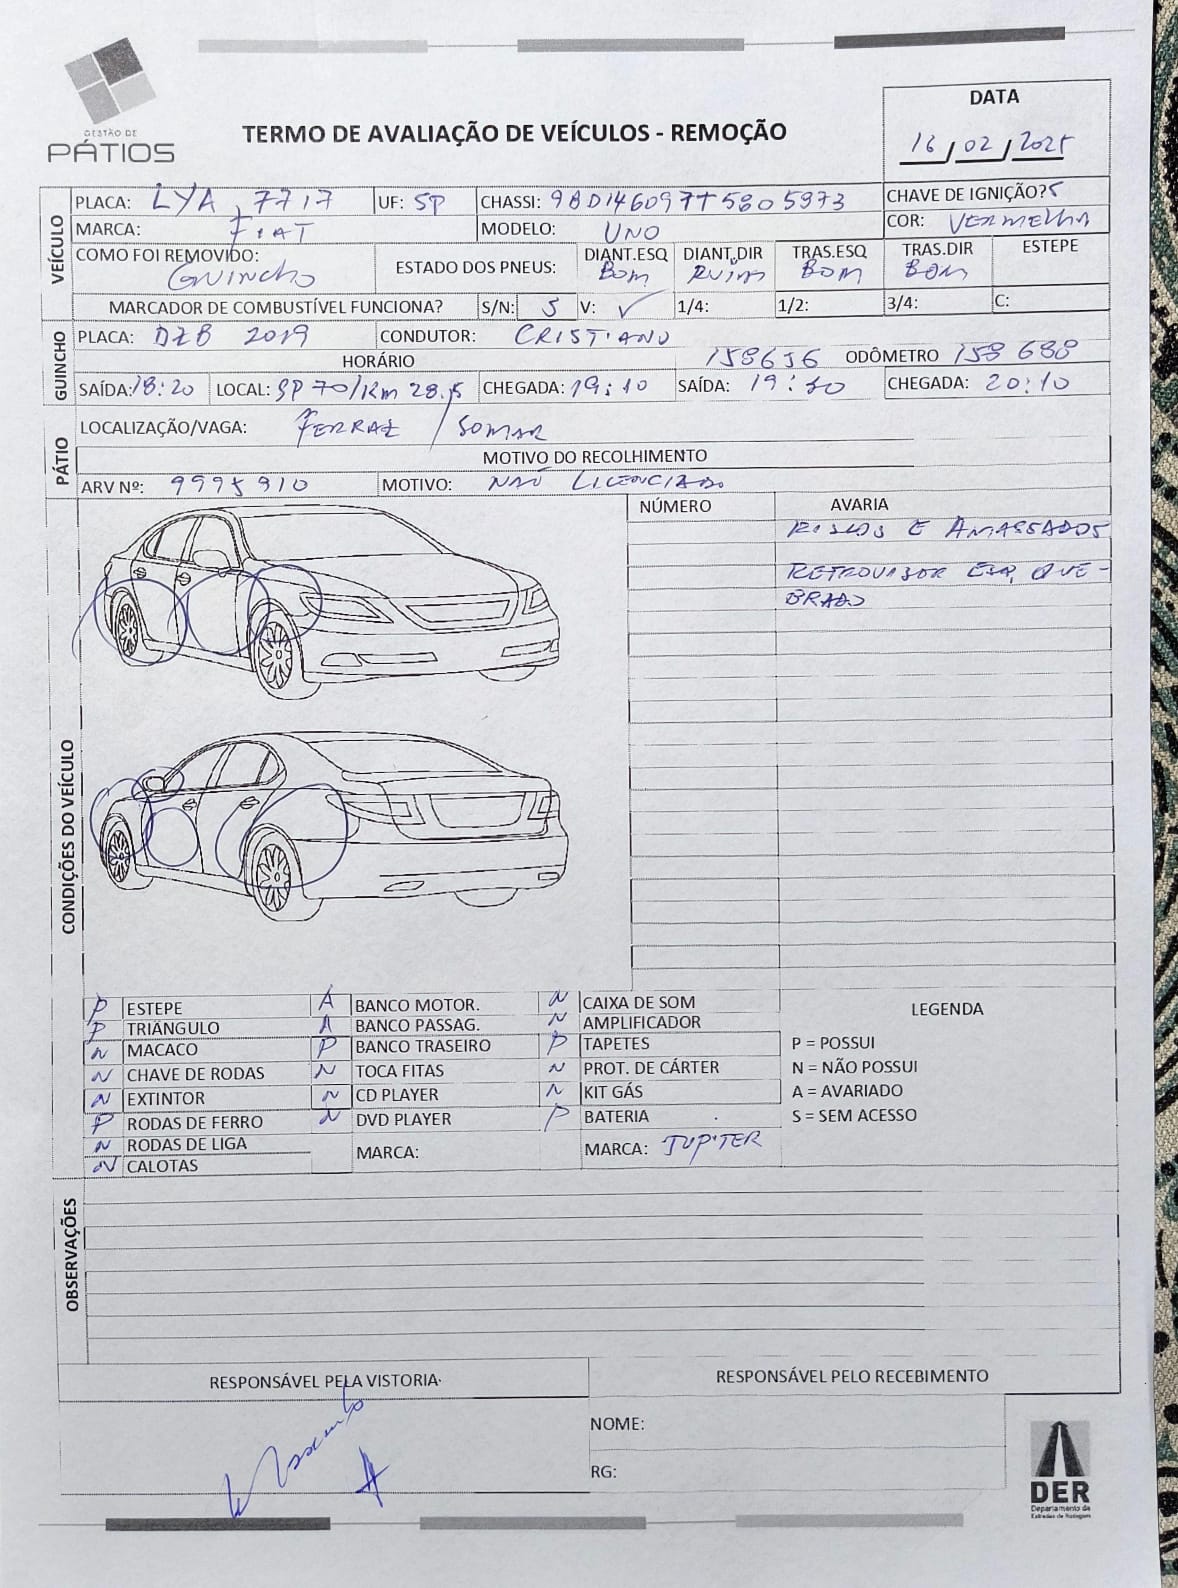 GESTÃO DE
PÁTIOS
TERMO DE AVALIAÇÃO DE VEÍCULOS - REMOÇÃO
DATA
16/02/2025
VEÍCULO
PLACA: LYA 7717 UF: SP CHASSI: 9BD146097T5805973 CHAVE DE IGNIÇÃO? S
MARCA: FIAT MODELO: UNO COR: VERMELHA
COMO FOI REMOVIDO: GUINCHO ESTADO DOS PNEUS: DIANT.ESQ BOM DIANT.DIR RUIM TRAS.ESQ BOM TRAS.DIR BOM ESTEPE
MARCADOR DE COMBUSTÍVEL FUNCIONA? S/N: S V: ✓ 1/4: 1/2: 3/4: C:
GUINCHO
PLACA: DZB 2019 CONDUTOR: CRISTIANO
HORÁRIO 158656 ODÔMETRO 158 688
SAÍDA: 18:20 LOCAL: SP 70/KM 28,5 CHEGADA: 19:10 SAÍDA: 19:30 CHEGADA: 20:10
PÁTIO
LOCALIZAÇÃO/VAGA: FERRAZ / SOMAR
MOTIVO DO RECOLHIMENTO
ARV Nº: 9995910 MOTIVO: NÃO LICENCIADO
CONDIÇÕES DO VEÍCULO
NÚMERO AVARIA
RISCOS E AMASSADOS
RETROVISOR ESQ. QUE-
BRADO
P ESTEPE A BANCO MOTOR. N CAIXA DE SOM LEGENDA
P TRIÂNGULO A BANCO PASSAG. N AMPLIFICADOR
N MACACO P BANCO TRASEIRO P TAPETES P = POSSUI
N CHAVE DE RODAS N TOCA FITAS N PROT. DE CÁRTER N = NÃO POSSUI
N EXTINTOR N CD PLAYER N KIT GÁS A = AVARIADO
P RODAS DE FERRO N DVD PLAYER P BATERIA S = SEM ACESSO
N RODAS DE LIGA MARCA: MARCA: JUPITER
N CALOTAS
OBSERVAÇÕES
RESPONSÁVEL PELA VISTORIA RESPONSÁVEL PELO RECEBIMENTO
NOME:
RG:
DER
Departamento de
Estradas de Rodagem